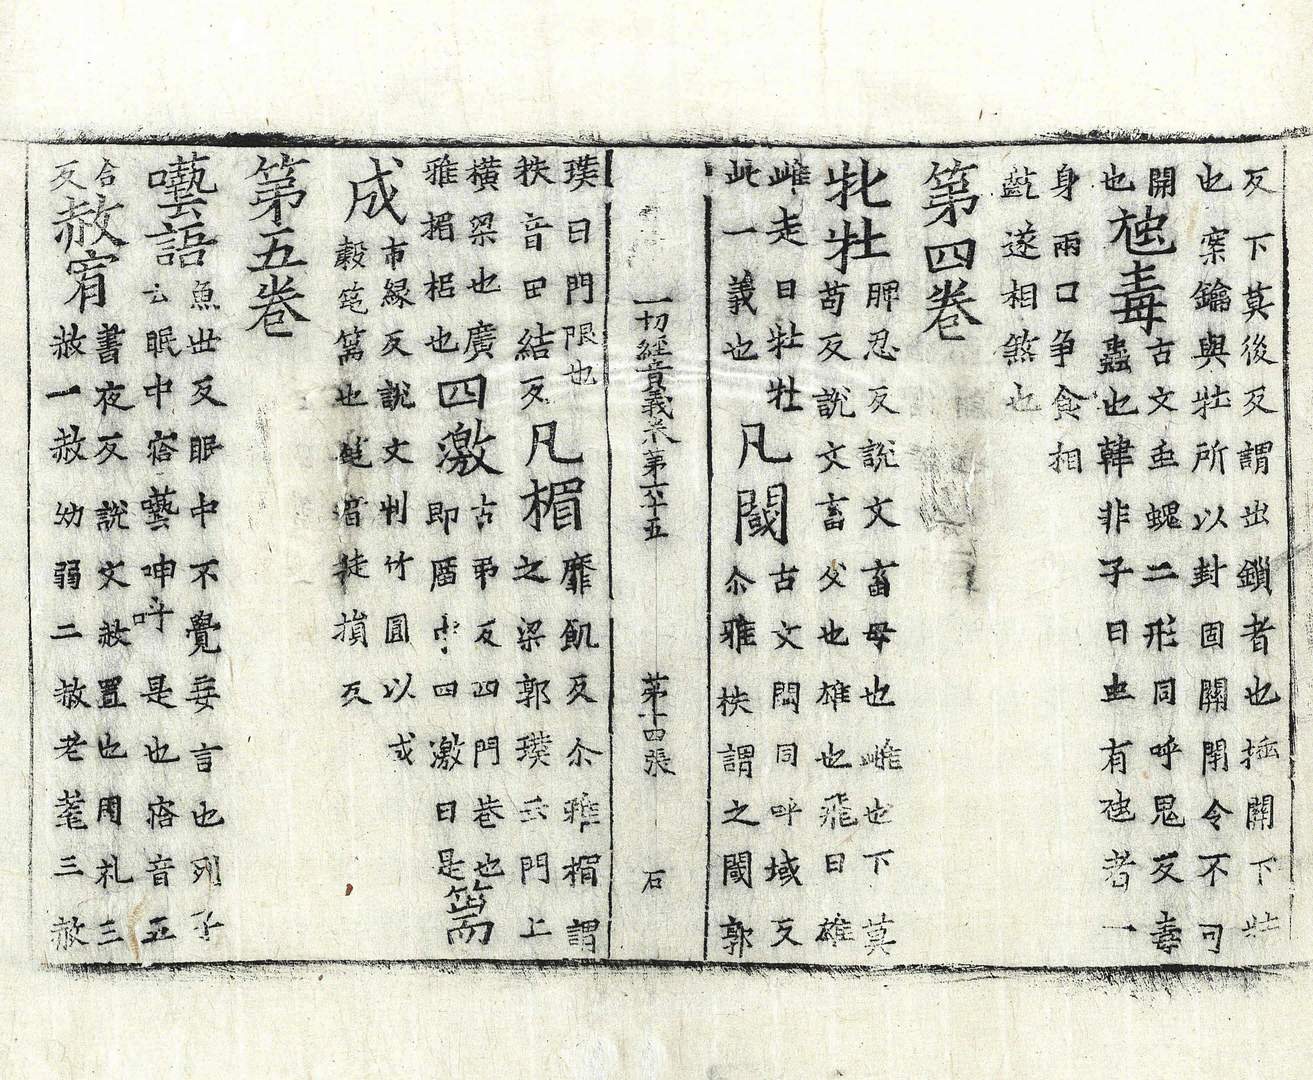 反下莫後反謂出鎖者也挿關下牡
也案鑰與牡所以封固關閇令不可
開虺毒古文䖝螝二形同呼鬼反毒
也蟲也韓非子曰䖝有虺者一
身兩口争食相
齕遂相煞也
第四卷
牝牡脾忍反說文畜母也雌也下莫
苟反說文畜父也雄也飛曰雄
雌走曰牡牡
此一義也凡閾古文閾同呼域反
尒雅柣謂之閾郭
一切經音義卷第二十五 第十四張 石
璞曰門限也
柣音田結反凡楣靡飢反尒雅楣謂
之梁郭璞云門上
橫梁也廣
雅楣梠也四激古弔反四門巷也
即厝中四激曰是篅
成市縁反說文判竹圓以或
穀笔篅也笔音徒損反
第五卷
囈語魚世反眠中不覺妄言也列子
云眠中㝛囈呻呼是也㝛音五
合
反赦宥書夜反說文赦置也周礼三
赦一赦幼弱二赦老耄三赦